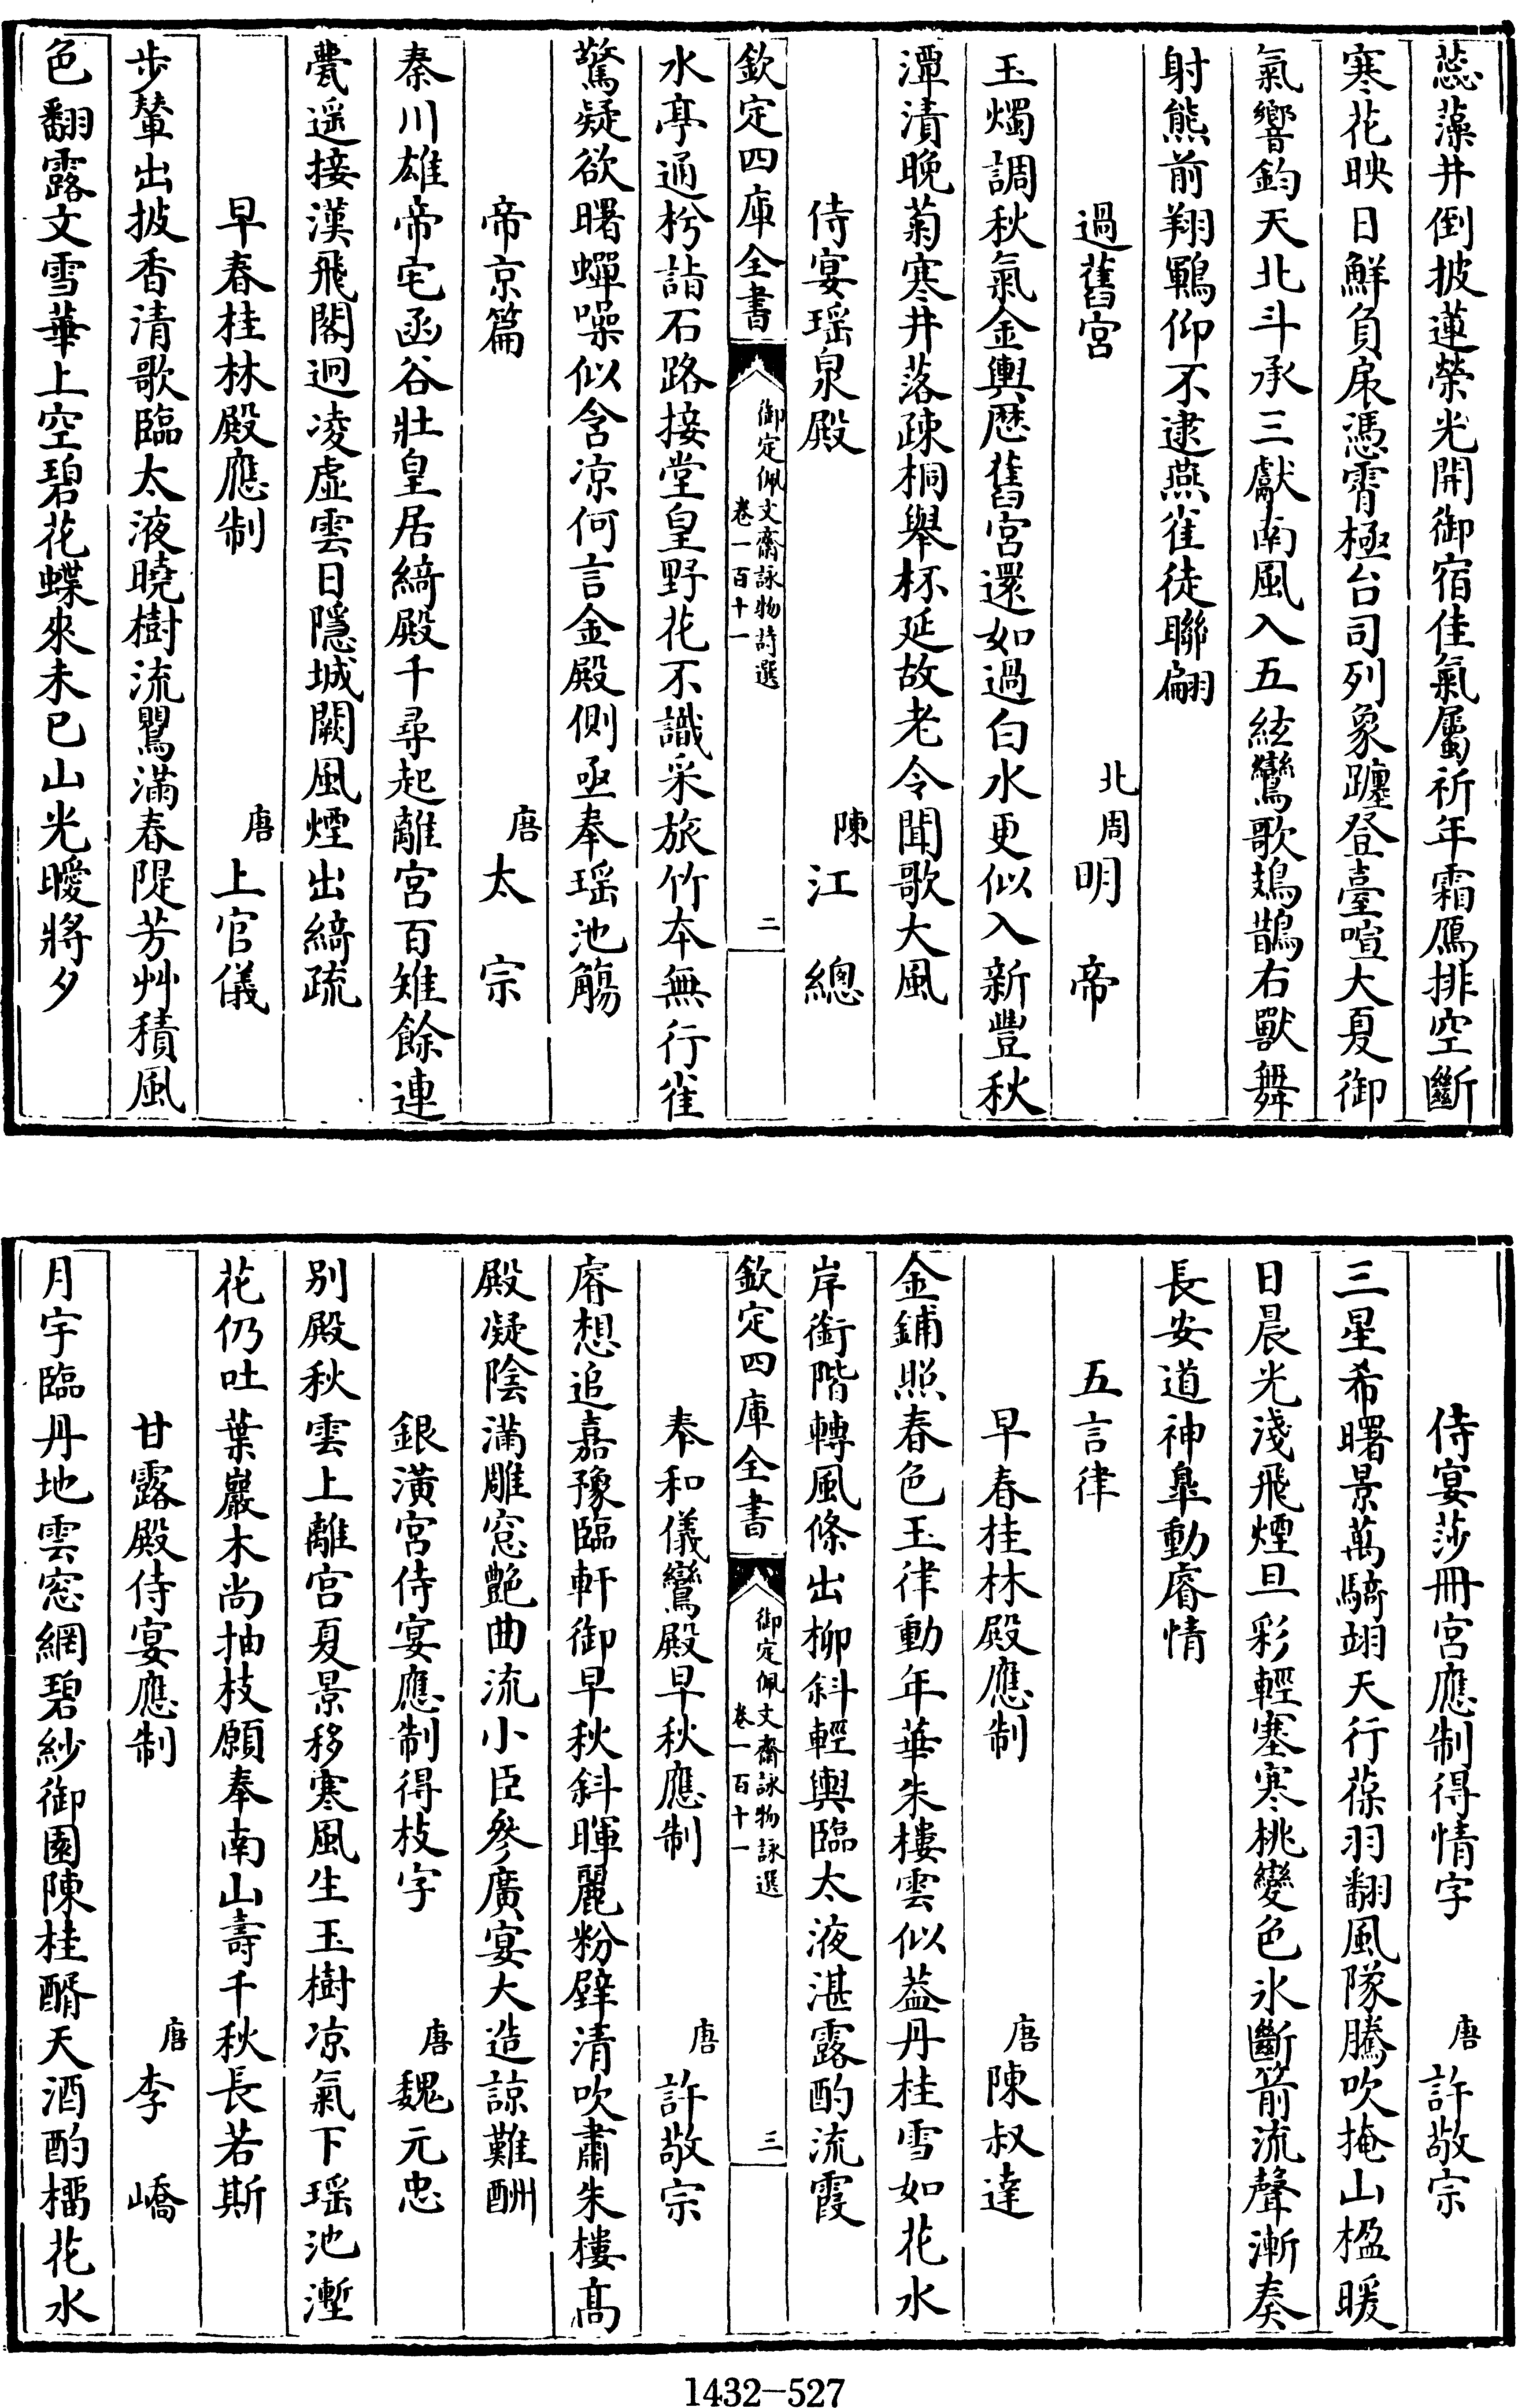 蕊藻井倒披蓮榮光開御宿佳氣屬祈年霜鴈排空斷
寒花映日鮮負扆憑霄極台司列象躔登臺喧大夏御
氣響鈞天北斗承三獻南風入五絃鸞歌鳷鵲右獸舞
射熊前翔鶤仰不逮燕雀徒聯翩
過舊宮 北周明帝
玉燭調秋氣金輿歷舊宮還如過白水更似入新豐秋
潭漬晚菊寒井落疎桐舉杯延故老令聞歌大風
侍宴瑤泉殿 陳江總
欽定四庫全書 御定佩文齋詠物詩選 卷一百十一 二
水亭通枍詣石路接堂皇野花不識采旅竹本無行雀
驚疑欲曙蟬噪似含凉何言金殿側亟奉瑤池觴
帝京篇 唐太宗
秦川雄帝宅函谷壯皇居綺殿千尋起離宮百雉餘連
甍遥接漢飛閣迥凌虛雲日隱城闕風煙出綺疏
早春桂林殿應制 唐上官儀
步輦出披香清歌臨太液曉樹流鸎滿春隄芳艸積風
色翻露文雪華上空碧花蝶來未已山光曖將夕
侍宴莎冊宮應制得情字 唐許敬宗
三星希曙景萬騎翊天行葆羽翻風隊騰吹掩山楹暖
日晨光淺飛煙旦彩輕塞寒桃變色氷斷箭流聲漸奏
長安道神臯動睿情
五言律
早春桂林殿應制 唐陳叔達
金鋪照春色玉律動年華朱樓雲似葢丹桂雪如花水
岸銜階轉風條出柳斜輕輿臨太液湛露酌流霞
欽定四庫全書 御定佩文齋詠物詠選 卷一百十一 三
奉和儀鸞殿早秋應制 唐許敬宗
睿想追嘉豫臨軒御早秋斜暉麗粉壁清吹肅朱樓高
殿凝陰滿雕窓艶曲流小臣參廣宴大造諒難酬
銀潢宮侍宴應制得枝字 唐魏元忠
別殿秋雲上離宮夏景移寒風生玉樹凉氣下瑤池塹
花仍吐葉巖木尚抽枝願奉南山壽千秋長若斯
甘露殿侍宴應制 唐李嶠
月宇臨丹地雲窓網碧紗御園陳桂醑天酒酌榴花水
1432-527